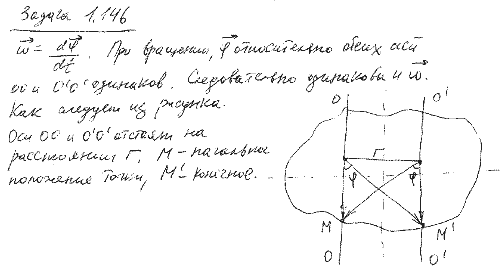 Задача 1.146
ω⃗ = dφ⃗/dt. При вращении, φ⃗ относительно обеих осей
OO и O'O' одинаков. Следовательно одинаковы и ω⃗.
Как следует из рисунка.
Оси OO и O'O' отстоят на
расстоянии r, M – начальное
положение точки, M' – конечное.
O O'
r
φ φ
M M'
O O'